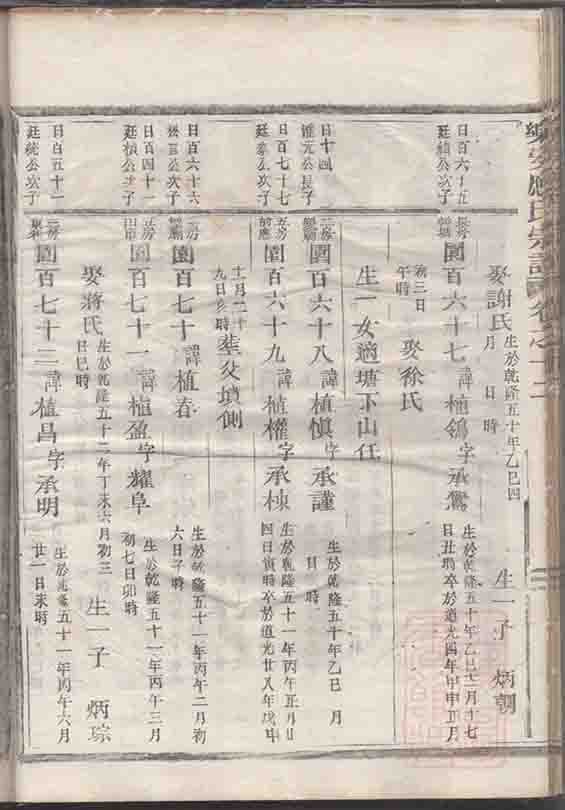 娶謝氏 生於乾隆五十年乙巳四
月 日 時 生一子 炳朝
日百六十五
廷楨公次子
園百六十七 諱植鴒 字承鸞
生於乾隆五十年乙巳十一月十七
日丑時卒於道光四年甲申正月
初三日
午時 娶徐氏
生一女適塘下山任
日十四
維元公長子
園百六十八 諱植慎 字承謹
生於乾隆五十年乙巳 月
日 時
日百七十七
五房
園百六十九 諱植權 字承棟
生於乾隆五十一年丙午五月廿
四日寅時卒於道光廿八年戊申
十一月二十
九日亥時 塟父墳側
日百六十六
園百七十 諱植春
生於乾隆五十一年丙午二月初
六日子時
日百四十一
廷楨公次子
園百七十一 諱植盈 字耀阜
生於乾隆五十一年丙午三月
初七日卯時
娶蔣氏 生於乾隆五十二年丁未六月初三
日巳時 生一子 炳琮
日百五十一
廷統公次子
園百七十二 諱植昌 字承明
生於乾隆五十一年丙午六月
廿一日未時